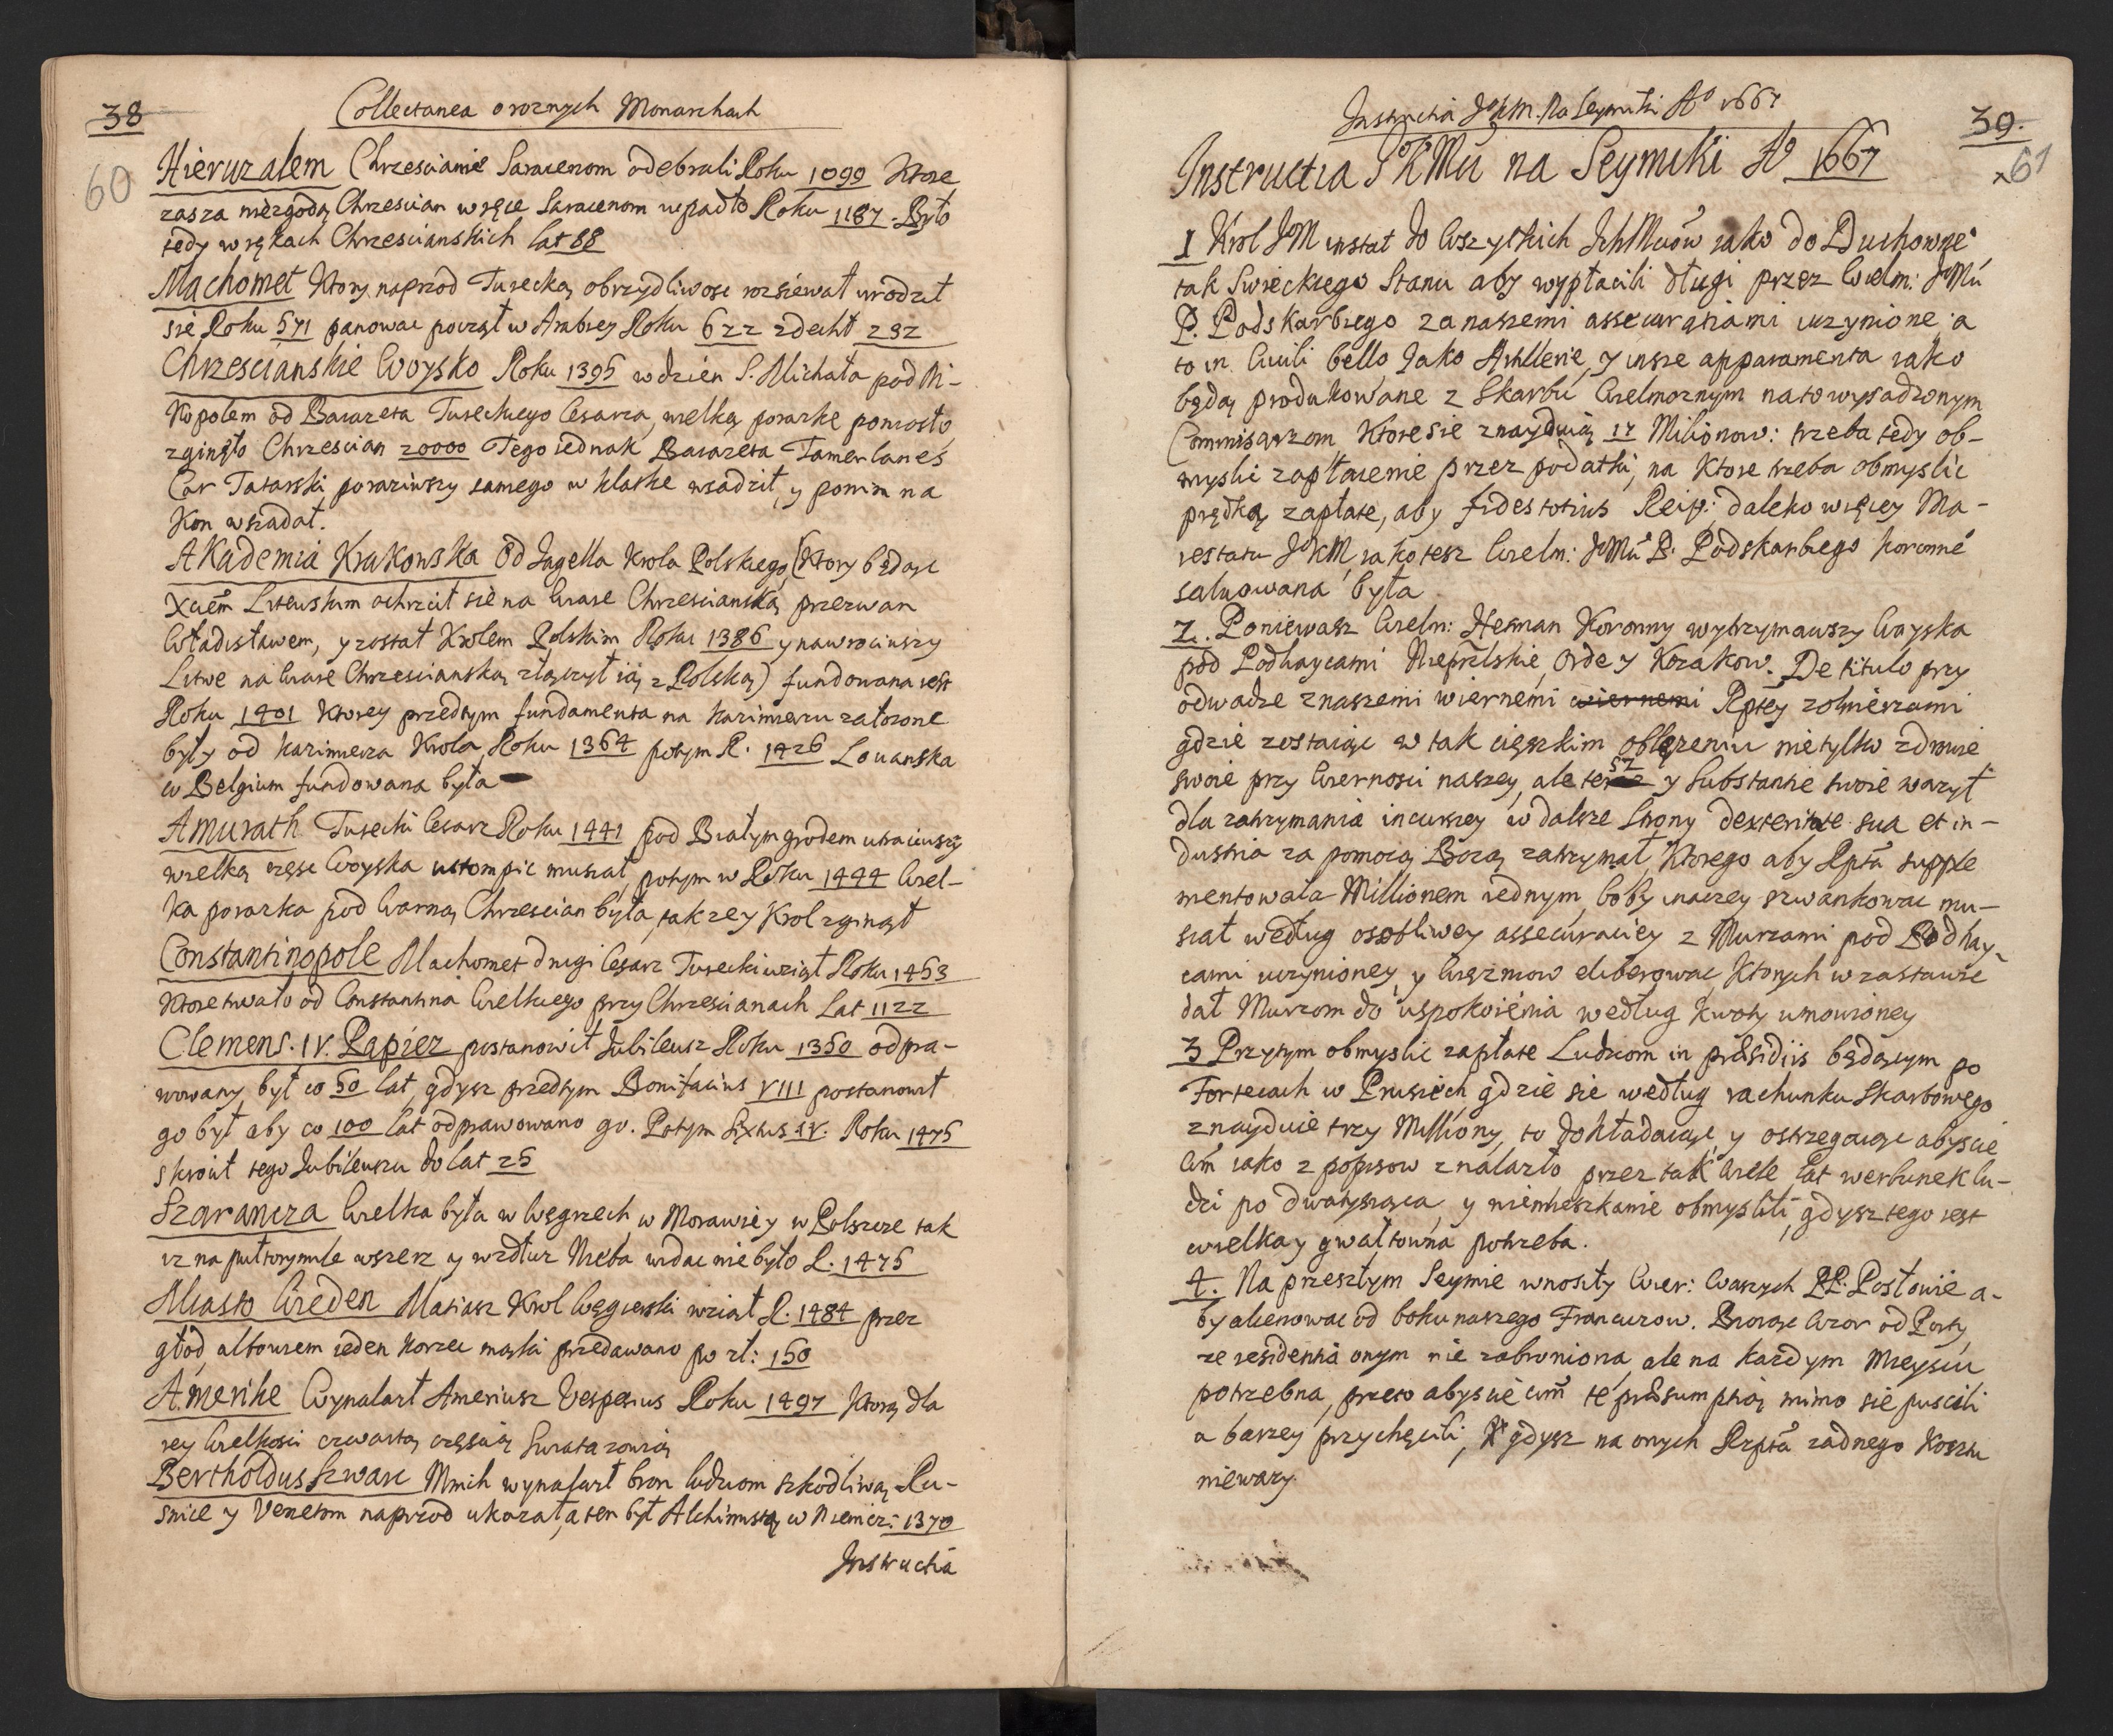 38
Collectanea o roznych Monarchach
60
Hieruzalem Chrzescianie Saracenom odebrali Roku 1099 Ktore
zasza niezgodą Chrzescian w ręce Saracenom wpadło Roku 1187. Było
tedy w rękach Chrzescianskich lat 88
Machomet Ktory naprzod Turecką obrzydliwosc rozsiewał urodził
sie Roku 571 panowac począł w Arabiey Roku 622 zdechł 232
Chrzescianskie Woysko Roku 1395 w dzien S. Michała pod Ni-
kopolem od Baiazeta Tureckiego Cesarza, wielką porazkę poniosło,
zginęło Chrzescian 20000 Tego iednak Baiazeta Tamerlanes
Car Tatarski poraziwszy samego w klatke wsadził, y ponim na
Kon wsiadał.
Akademia Krakowska Od Jagella Krola Polskiego, (Ktory będąc
Xciem Litewskim ochrzcił sie na wiare Chrzescianską przezwan
Władisławem, y został Krolem Polskim Roku 1386 y nawrociwszy
Litwe na wiare Chrzescianską złączył ią z Polską) fundowana iest
Roku 1401 Ktorey przedtym fundamenta na Kazimierzu załozone
były od Kazimierza Krola Roku 1364 potym R. 1426 Lovanska
w Belgium fundowana była
Amurath Turecki Cesarz Roku 1441 pod Białymgrodem utraciwszy
wielką częsc Woyska ustompic musiał, potym w Roku 1444 Wiel-
ka porazka pod Warną Chrzescian była, takze y Krol zginął
Constantinopole Machomet drugi Cesarz Turecki wziął Roku 1453
Ktore trwało od Constantina Wielkiego przy Chrzescianach Lat 1122
Clemens. IV. Papiez postanowił Jubileusz Roku 1350 odpra-
wowany był co 50 lat, gdysz przedtym Bonifacius VIII postanowił
go był aby co 100 lat odprawowano go. Potym Sixtus IV. Roku 1475
skrocił tego Jubileuszu do lat 25
Szarancza Wielka była w Węgrzech, w Morawie y w Polszcze tak
iz na pułtorymile wszerz y wzdłuz Nieba widac nie było R. 1475
Miasto Wieden Matiasz Krol Węgierski wziął R. 1484 przez
głod, albowiem ieden Korzec mąki przedawano po zł: 150
Amerike Wynalazł Americusz Vespesius Roku 1497 Ktorą dla
iey Wielkosci czwartą częscią Swiata zowią
Bertholdus Szwarc Mnich wynalazł bron ludziom szkodliwą Ru-
snice y Venetom naprzod ukazał, a ten był Alchimistą w Niemcz: 1370
Instructia
Instructia JoKM. Na Seymiki Ao 1667
39.
61
Instructia JoKMci na Seymiki Ao 1667
1 Krol JoM instat do Wszystkich IchMciow iako do Duchowne°
tak Swieckiego Stanu aby wypłacili długi przez Wielm: JoMci
P. Podskarbiego za naszemi assecuratiami uczynione, a
to in Civili bello Jako Artillerie, y insze apparamenta iako
będą produkowane z Skarbu Wielmoznym na to wysadzonym
Commisarzom Ktore sie znayduią 17 Milionow: trzeba tedy ob-
myslic zapłacenie przez podatki, na Ktore trzeba obmyslic
prędką zapłate, aby fides totius Reip: daleko więcey Ma-
iestatu JoKM, iako tesz Wielm: JoMci P. Podskarbiego Koronne°
salwowana była
2. Poniewasz Wielm: Hetman Koronny wytrzymawszy Woyska
pod Podhaycami Nieprzelskie, Orde y Kozakow. De titulo przy
odwadze z naszemi wiernemi wiernemi Rptey zolnierzami
gdzie zostaiąc w tak cięszkim oblęzeniu nietylko zdrowie
swoie przy Wiernosci naszey, ale tesz y Substantie swoie wazył
dla zatrzymania incursey w dalsze Strony dexteritate sua et in-
dustria za pomocą Bozą zatrzymał, Ktorego aby Rpta supple
mentowała Millionem iednym, boby inaczey szwankowac mu-
siał według osobliwey assecuraciey z Murzami pod Podhay-
cami uczynioney, y Więzniow eliberowac, Ktorych w zastawie
dał Murzom do uspokoienia według Kwoty umowioney
3 Przytym obmyslic zapłate Ludziom in præsidiis będącym po
Fortecach w Prusiech gdzie sie według rachunku Skarbowego
znayduie trzy Milliony, to dokładaiąc, y ostrzegaiąc abyscie
Wm iako z popisow znalazło, przez tak Wiele Lat werbunek lu-
dzi po dwatysiąca, y niemieszkanie obmyslili, gdysz tego iest
wielka y gwałtowna potrzeba.
4. Na przeszłym Seymie wnosiły Wier: Waszych PP. Posłowie a-
by alienowac od boku naszego Francuzow. Biorąc Wzor od Porty
ze residentia onym nie zabroniona, ale na kazdym Mieyscu
potrzebna, przeto abyscie Wm te præsumptią mimo sie puscili
a barzey przychęcili, gdysz na onych Rzpta zadnego Kosztu
niewazy.